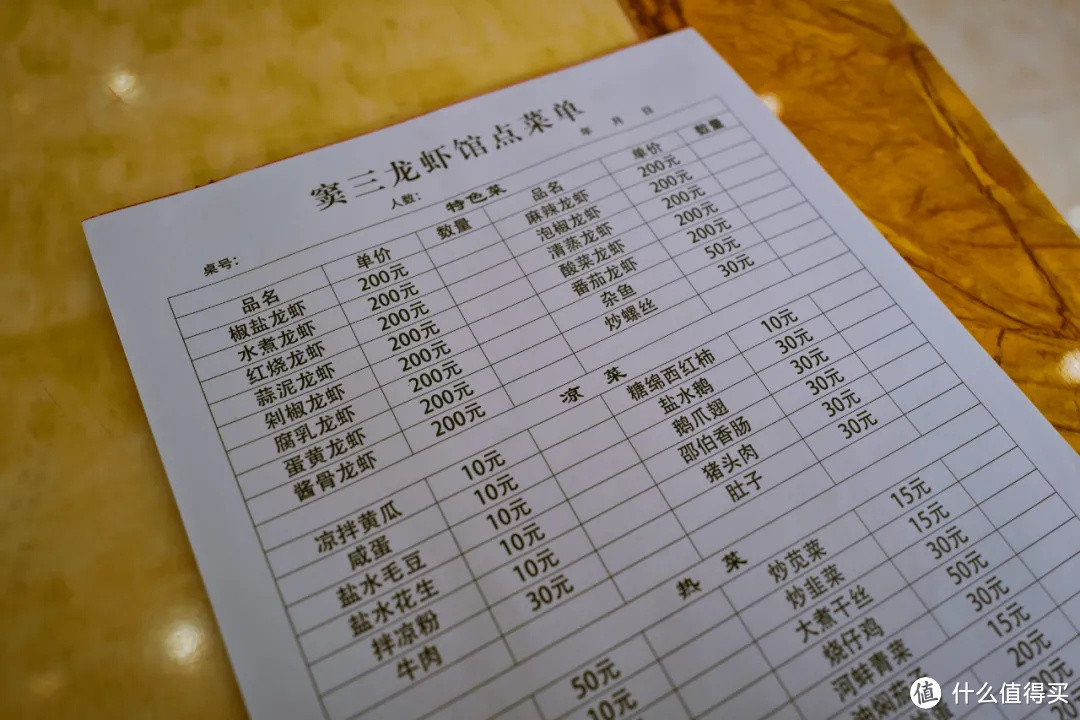 窦三龙虾馆点菜单
年 月 日
桌号： 人数：
特色菜
品名 单价 数量 品名 单价 数量
椒盐龙虾 200元 麻辣龙虾 200元
水煮龙虾 200元 泡椒龙虾 200元
红烧龙虾 200元 清蒸龙虾 200元
蒜泥龙虾 200元 酸菜龙虾 200元
剁椒龙虾 200元 番茄龙虾 200元
腐乳龙虾 200元 杂鱼 50元
蛋黄龙虾 200元 炒螺丝 30元
酱骨龙虾 200元
凉 菜
凉拌黄瓜 10元 糖绵西红柿 10元
咸蛋 10元 盐水鹅 30元
盐水毛豆 10元 鹅爪翅 30元
盐水花生 10元 邵伯香肠 30元
拌凉粉 10元 猪头肉 30元
牛肉 30元 肚子 30元
热 菜
50元 炒苋菜 15元
10元 炒韭菜 15元
大煮干丝 30元
烧仔鸡 50元
河蚌青菜 30元
油焖茄 15元
20元
值 什么值得买